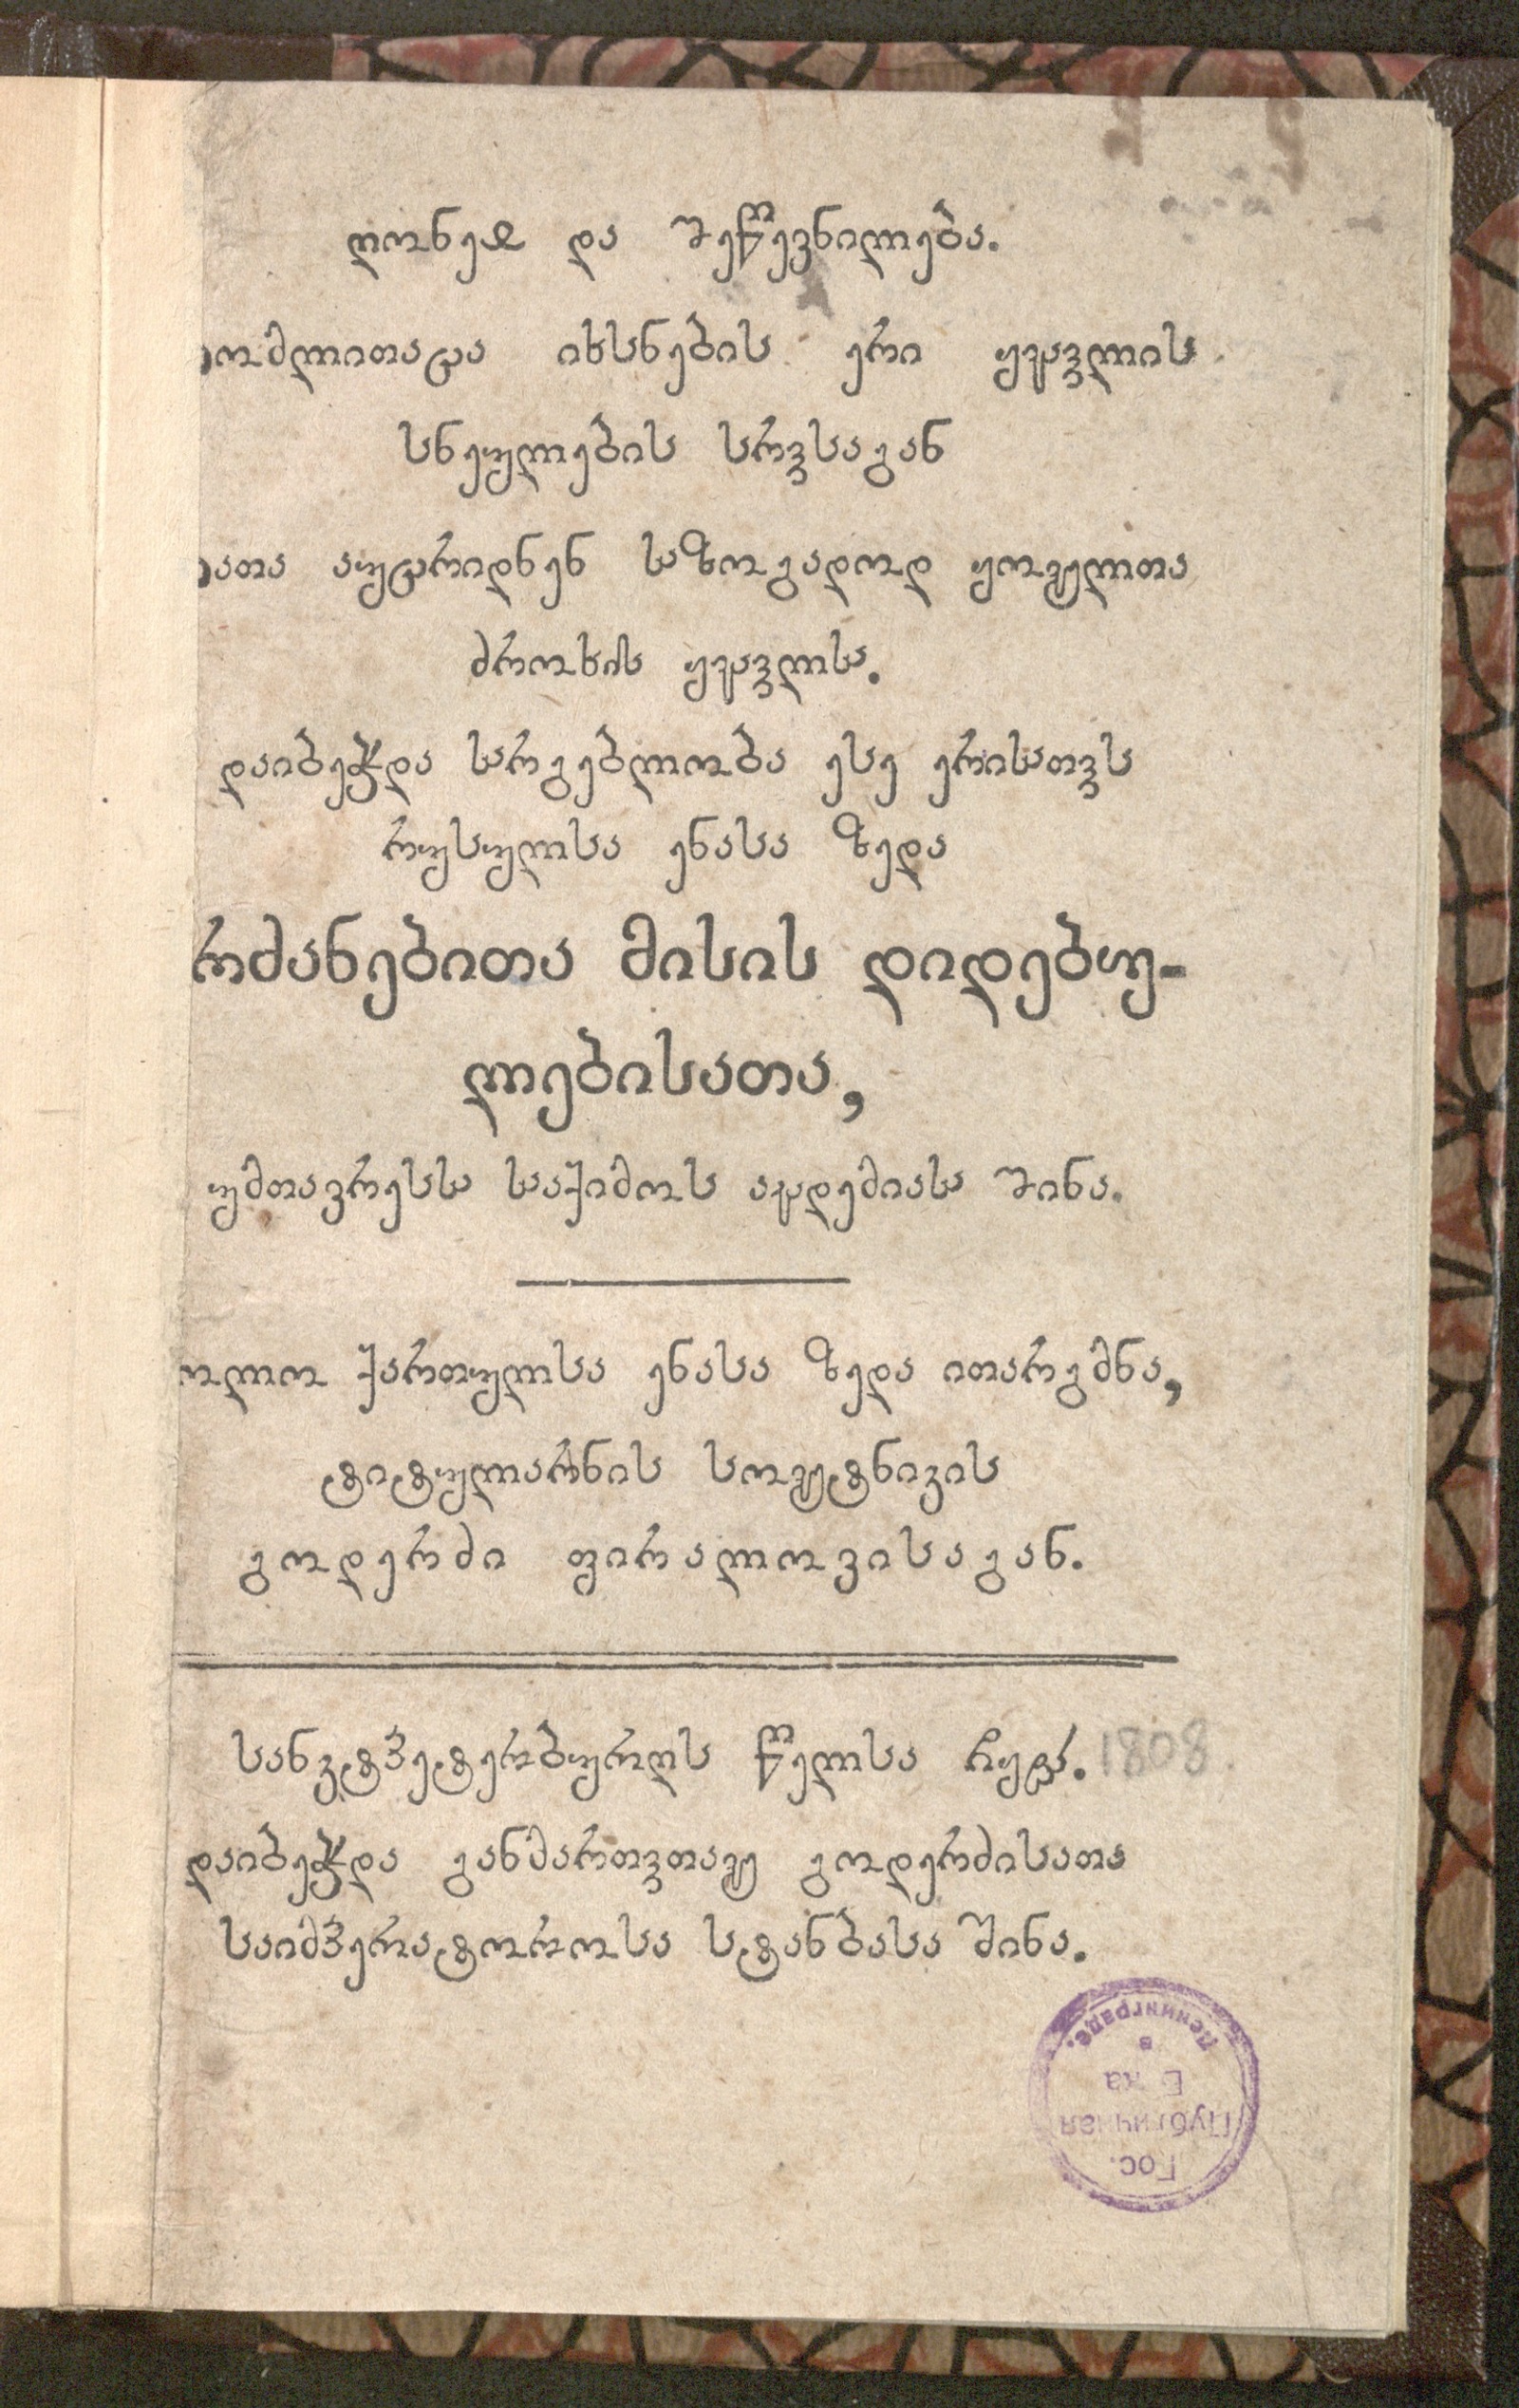 ღონეჲ და შეწევნილება.
რომლითაცა იხსნების ერი ყვავილის
სნეულების სრვსაგან
რათა აუცრიდნენ საზოგადოდ ყოველთა
ძროხის ყვავილსა.
დაიბეჭდა სარგებლობა ესე ერისათჳს
რუსულსა ენასა ზედა
რძანებითა მისის დიდებუ-
ლებისათა,
უმთავრესსა საქიმოს აკადემიასა შინა.
ოლო ქართულსა ენასა ზედა ითარგმნა,
ტიტულარნის სოვეტნიკის
გოდერძი ფირალოვისაგან.
სანკტპეტერბურღს წელსა ჩყც. 1808.
დაიბეჭდა განმართვთავე გოდერძისათა
საიმპერატოროსა სტანბასა შინა.
Гос.
Публичная
Б-ка
в
Ленинграде.